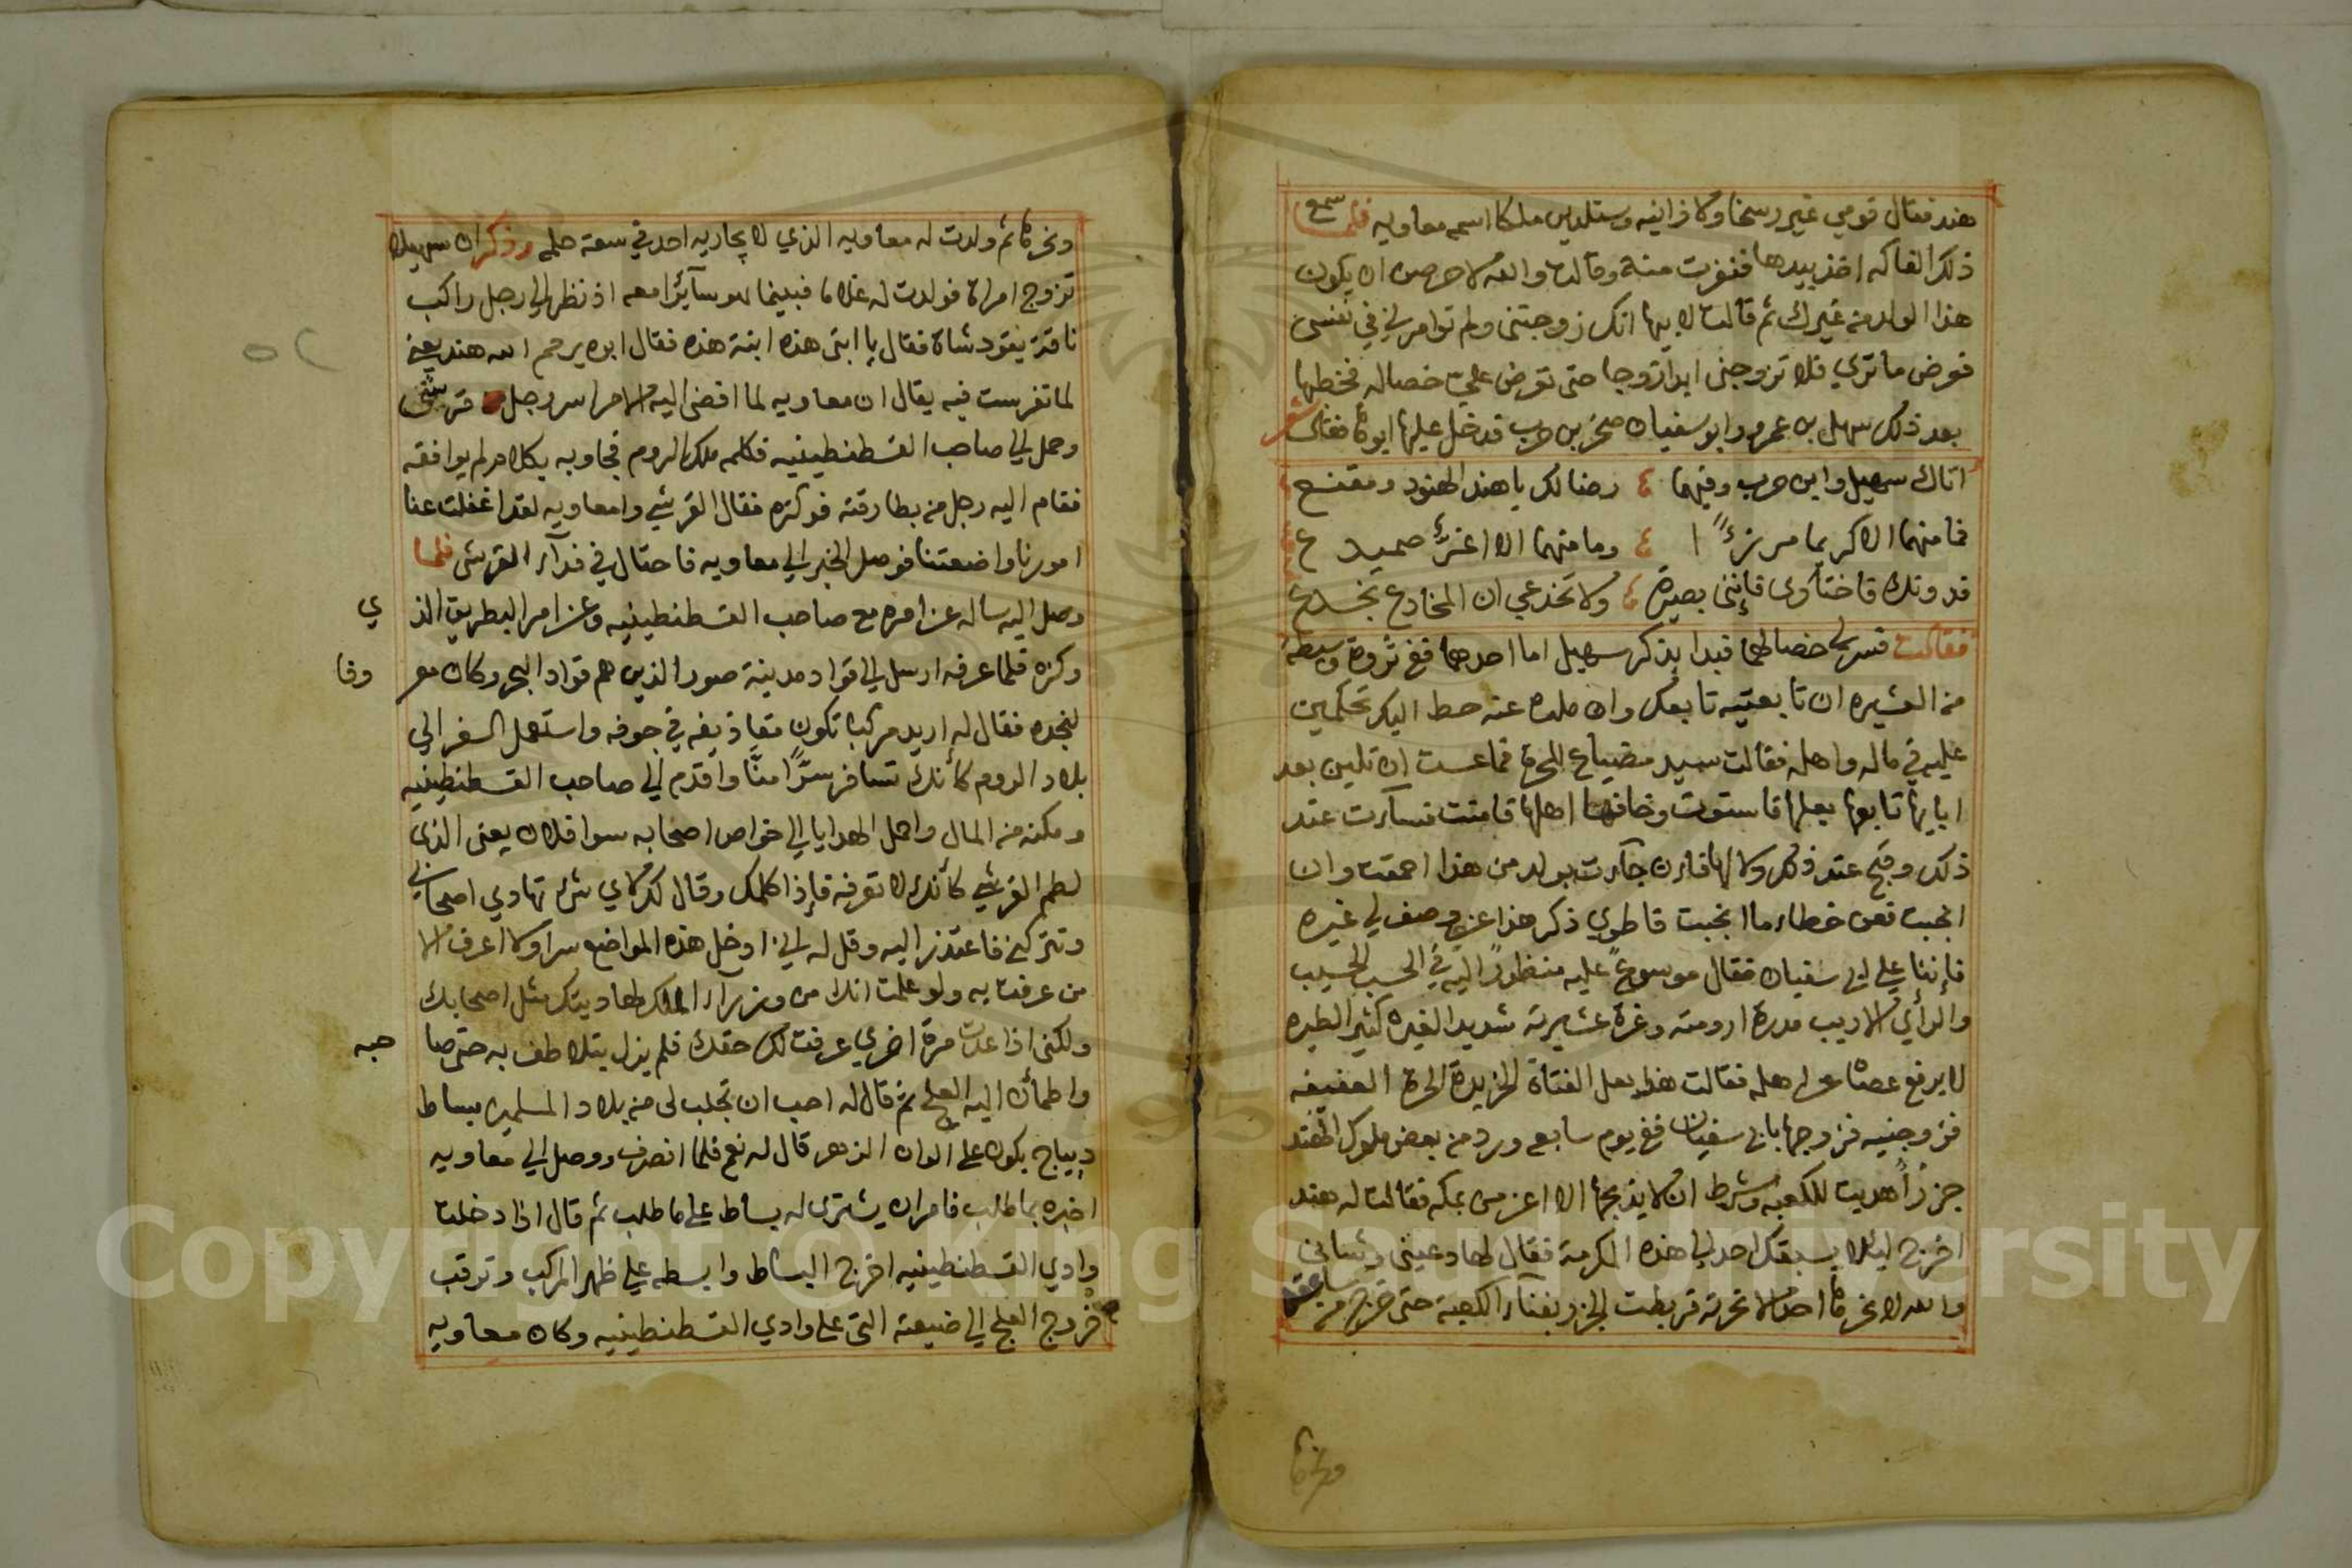 هند فقال قومي غير رسخا ولا زانيه وستلدين ملكا اسمه معاويه فلما سمع
ذلك الفاكه اخذ بيدها فنفرت منه وقالت والله لاحرصن ان يكون
هذا الولد من غيرك ثم قالت لابيها انك زوجتني ولم توامرني في نفسي
فعرض ما تري فلا تزوجني ابدا زوجا حتى تعرض علي خصاله فخطبها
بعد ذلك سهيل بن عمرو وابو سفيان صخر بن حرب فدخل عليها ابوها فقال شعر
اتاك سهيل وابن حرب وفيهما رضا لك يا هند الهنود ومقنع
فما منهما الا كريما مرزءا وما منهما الا اغر صميدع
فدونك فاختاري فإنني بصيرة ولا تخدعي ان المخادع يخدع
فقالت فسر لي خصالهما فبدا بذكر سهيل اما احدهما ففي ثروة وسطة
من العشيره ان تابعتيه تابعك وان ملت عنه حط اليك تحكمين
عليه في ماله واهله فقالت سيد مضياع للحرة فما عست ان تلين بعد
ابايها تابعها بعلها فاستوت وخافها اهلها فامنت فسآت عند
ذلك وقبح عند ذلك دلالها فان جآت بولد من هذا احمقت وان
انجبت فعن خطاء ما انجبت فاطوي ذكر هذا عني وصف لي غيره
فإننا علي ابي سفيان فقال موسوع عليه منظور اليه في الحسب الحسيب
والرأي الاريب مدرة ارومته وغرة عشيرته شديد الغيره كثير الطيره
لا يرفع عصاه عن اهله فقالت هذا بعل الفتاة الخريدة الحرة العفيفه
فزوجنيه فزوجها بابي سفيان ففي يوم سابعه ورد من بعض ملوك الهند
جزراً هديت للكعبه وشرط ان لا يذبحها الا اعز من بمكه فقالت له هند
اخرج ليلا يسبقك احد الي هذه المكرمة فقال لها دعيني وشاني
والله لا نحرها احد الا نحرته فربطت الجزر بفنآء الكعبة حتى خرج من سابعه
ونحرها
ونحرها ثم ولدت له معاويه الذي لا يجاريه احد في سعة حلمه وذكر ان سهيلا
تزوج امراة فولدت له غلاما فبينما هو سآئرا معه اذ نظر الي رجل راكب
ناقة يقود شاة فقال يا ابتي هذه ابنة هذه فقال ابوه يرحم الله هند يعني
لما تفرست فيه يقال ان معاويه لما افضي اليه الامر اسر رجل قرشي
وحمل الي صاحب القسطنطينيه فكلمه ملك الروم فجاوبه بكلام لم يوافقه
فقام اليه رجل من بطارقته فوكزه فقال القرشي وامعاويه لقد اغفلت عنا
امورنا واضعتنا فوصل الخبر الي معاويه فاحتال في فدآء القرشي فلما
وصل اليه ساله عن امره مع صاحب القسطنطينيه وعن امر البطريق الذ ي
وكزه فلما عرفه ارسل الي قواد مدينة صور الذين هم قواد البحر وكان معر وفا
بنجده فقال له اريد مركبا تكون مقاذيفه في جوفه واستعمل السفر الي
بلاد الروم كأنك تسافر سرًّا منّا واقدم الي صاحب القسطنطينيه
ومكنه من المال واحمل الهدايا الي خواص اصحابه سوا فلان يعني الذي
لطم القرشي كأنك لا تعرفه فإذا كلمك وقال لك لاي شئ تهادي اصحابي
وتتركني فاعتذر اليه وقل له اني ادخل هذه المواضع سرا ولا اعرف الا
من عرفت به ولو علمت انك من وزرآء الملك لهاديتك مثل اصحابك
ولكني اذا عدت مرة اخري عرفت لك حقك فلم يزل يتلاطف به حتى صا حبه
واطمأن اليه العلج ثم قال له احب ان تجلب لي من بلاد المسلمين بساط
ديباج يكون علي الوان الزهر قال له نعم فلما انصرف ووصل الي معاويه
اخبره بما طلب فامر ان يشترى له بساط علي ما طلب ثم قال اذا دخلت
وادي القسطنطينيه اخرج البساط وابسطه علي ظهر المركب وترقب
خروج العلج الي ضيعته التي علي وادي القسطنطينيه وكان معاويه
Copyright © King Saud University